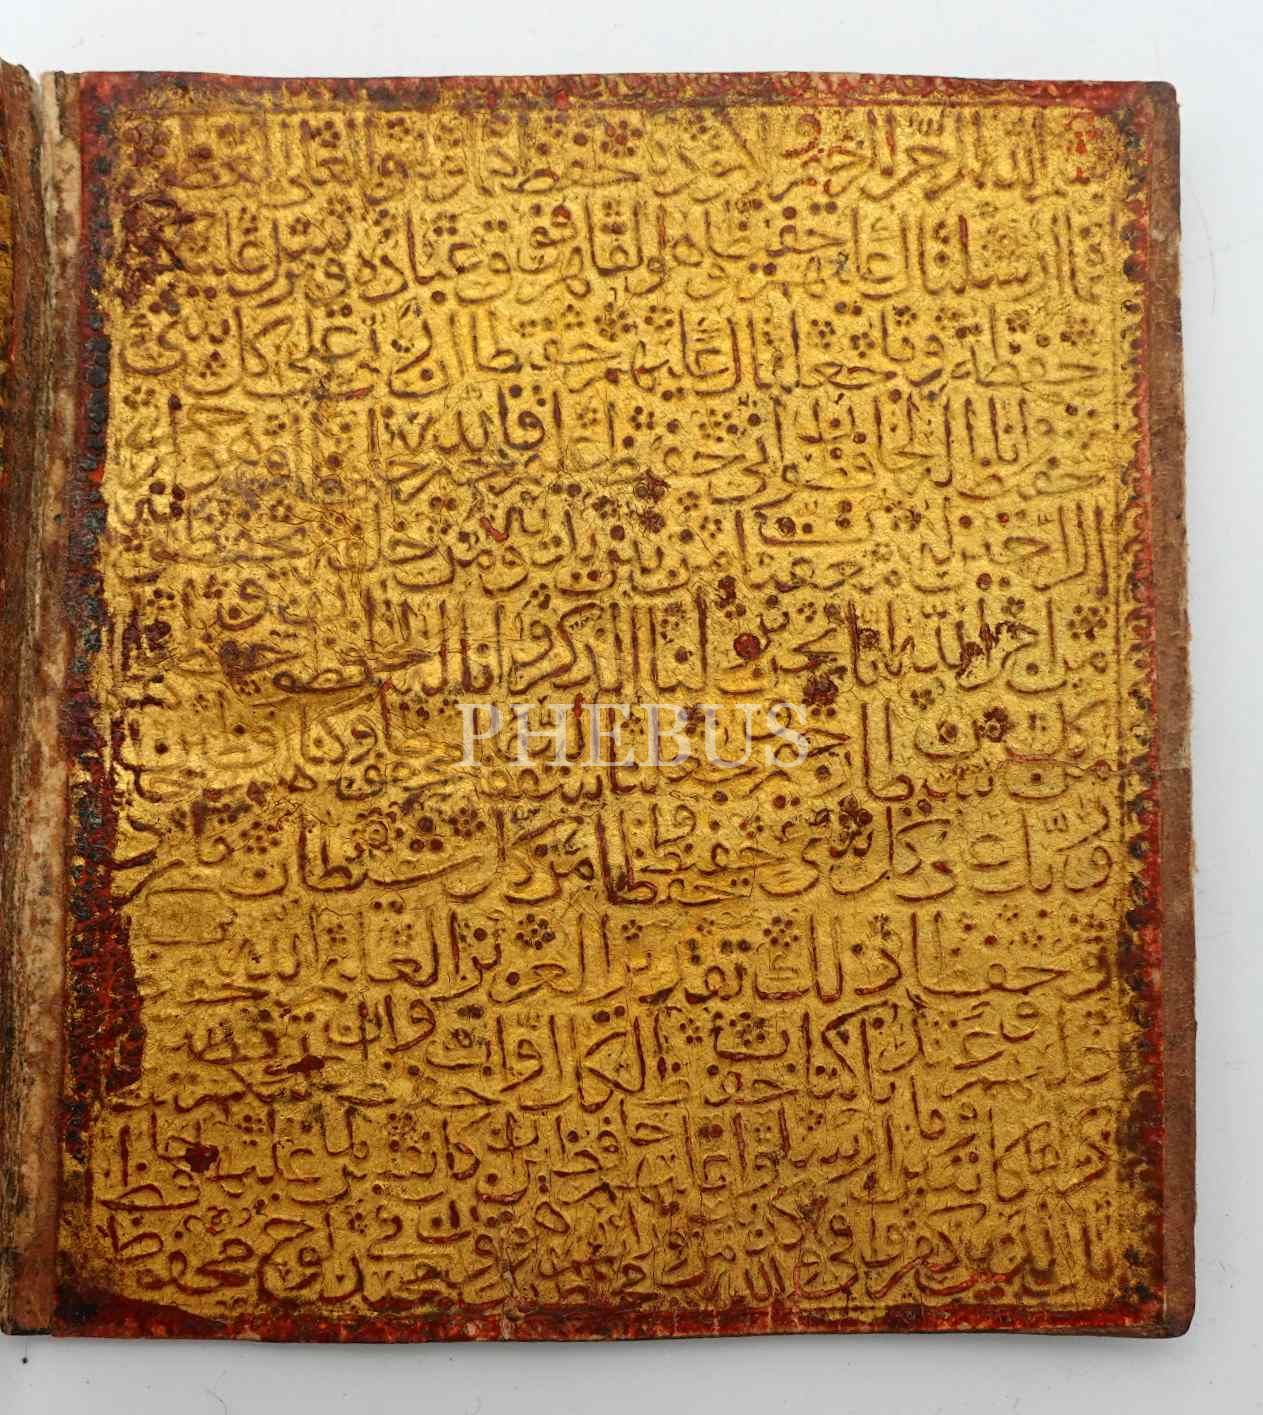 الله الرحمن الرحيم ولا يؤده حفظهما وهو العلي العظيم
فما ارسلناك عليهم حفيظا وهو القاهر فوق عباده ويرسل عليكم
حفظة وما جعلناك عليهم حفيظا ان ربي على كل شيء
حفيظ وانا له لحافظون اني حفيظ فالله خير حافظا وهو ارحم
الراحمين له معقبات من بين يديه ومن خلفه يحفظونه
من امر الله انا نحن نزلنا الذكر وانا له لحافظون
كل شيطان رجيم وجعلنا السماء سقفا محفوظا وكنا لهم حافظين
وربك على كل شيء حفيظ وحفظا من كل شيطان مارد
وحفظا ذلك تقدير العزيز العليم الله
حفيظ عليهم وعندنا كتاب حفيظ لكل اواب حفيظ وان عليكم
كراما كاتبين وما ارسلوا عليهم حافظين ان كل نفس لما عليها حافظ
بل الذين كفروا في تكذيب والله من ورائهم محيط بل هو قرآن مجيد في لوح محفوظ
PHEBUS